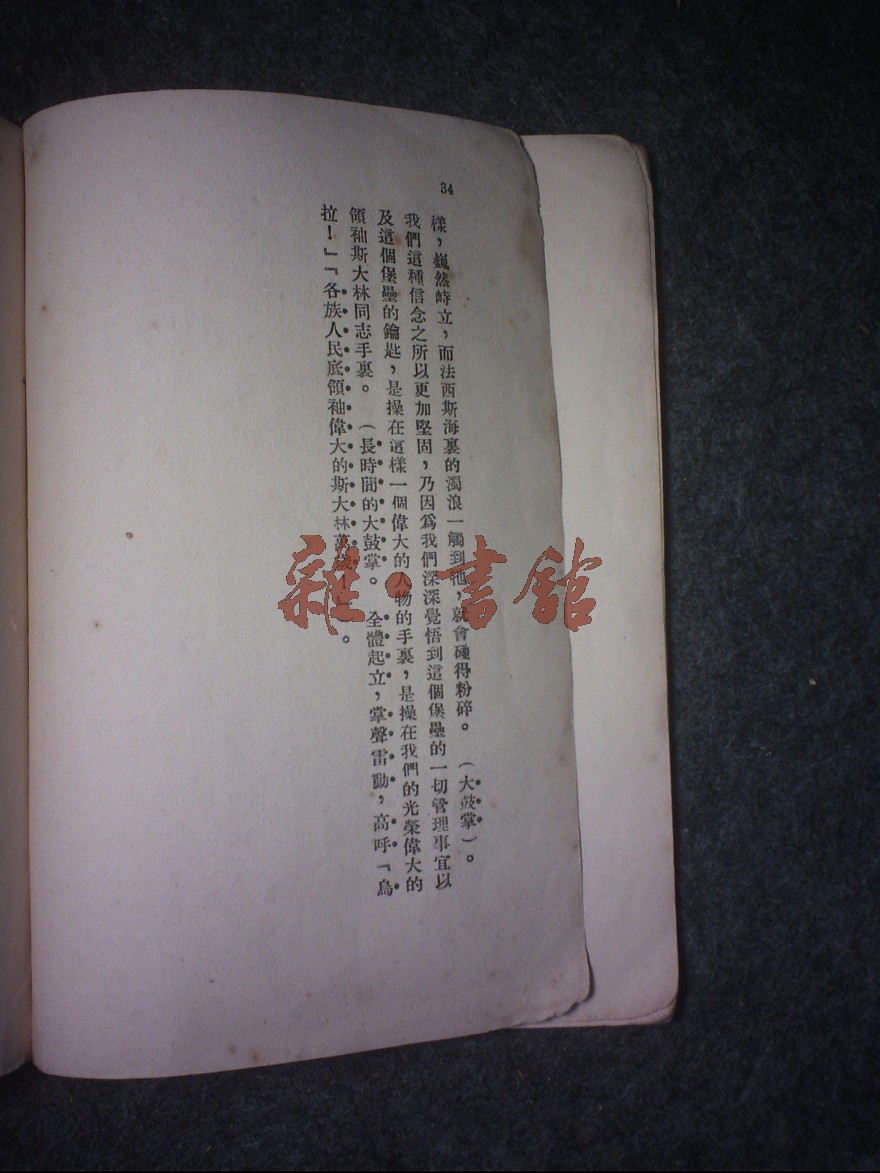 34
樣，巍然峙立，而法西斯海裏的濁浪一觸到牠，就會碰得粉碎。（大鼓掌）。
我們這種信念之所以更加堅固，乃因爲我們深深覺悟到這個堡壘的一切管理事宜以
及這個堡壘的鑰匙，是操在這樣一個偉大的人物的手裏，是操在我們的光榮偉大的
領袖斯大林同志手裏。（長時間的大鼓掌。全體起立，掌聲雷動，高呼『烏
拉！』『各族人民底領袖偉大的斯大林萬歲！』）。
雜·書館